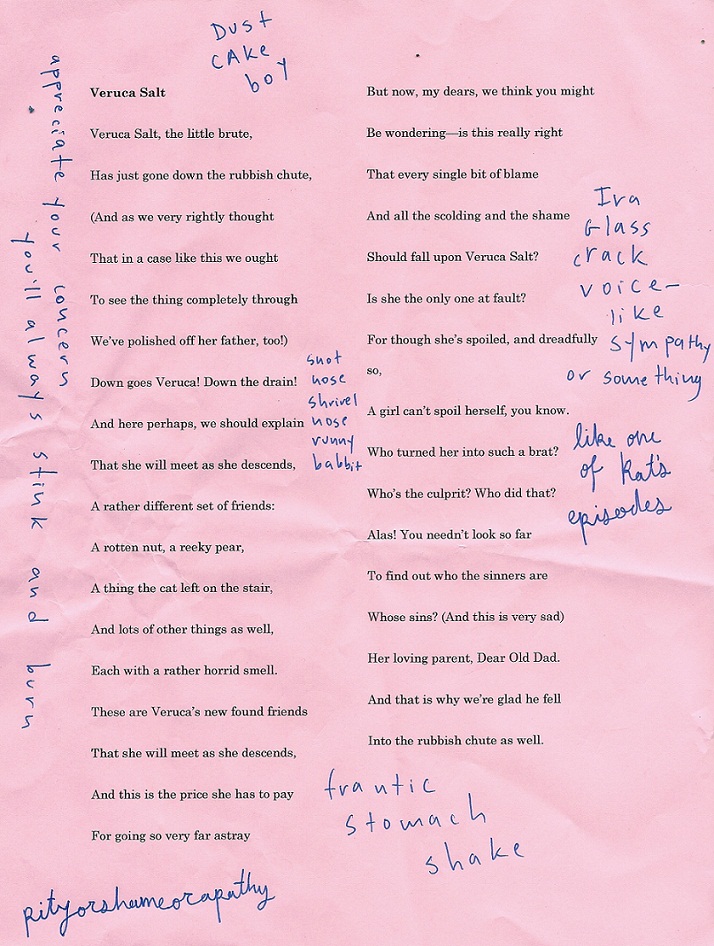 Dust
CAKe
boy
appreciate your concern
You'll always stink and burn
Veruca Salt
Veruca Salt, the little brute,
Has just gone down the rubbish chute,
(And as we very rightly thought
That in a case like this we ought
To see the thing completely through
We've polished off her father, too!)
Down goes Veruca! Down the drain!
And here perhaps, we should explain
That she will meet as she descends,
A rather different set of friends:
A rotten nut, a reeky pear,
A thing the cat left on the stair,
And lots of other things as well,
Each with a rather horrid smell.
These are Veruca's new found friends
That she will meet as she descends,
And this is the price she has to pay
For going so very far astray
snot
nose
shrivel
nose
runny
babbit
But now, my dears, we think you might
Be wondering—is this really right
That every single bit of blame
And all the scolding and the shame
Should fall upon Veruca Salt?
Is she the only one at fault?
For though she's spoiled, and dreadfully
so,
A girl can't spoil herself, you know.
Who turned her into such a brat?
Who's the culprit? Who did that?
Alas! You needn't look so far
To find out who the sinners are
Whose sins? (And this is very sad)
Her loving parent, Dear Old Dad.
And that is why we're glad he fell
Into the rubbish chute as well.
Ira
Glass
crack
voice-
like
sympathy
or something
like one
of Kat's
episodes
frantic
stomach
shake
pityorshameorapathy